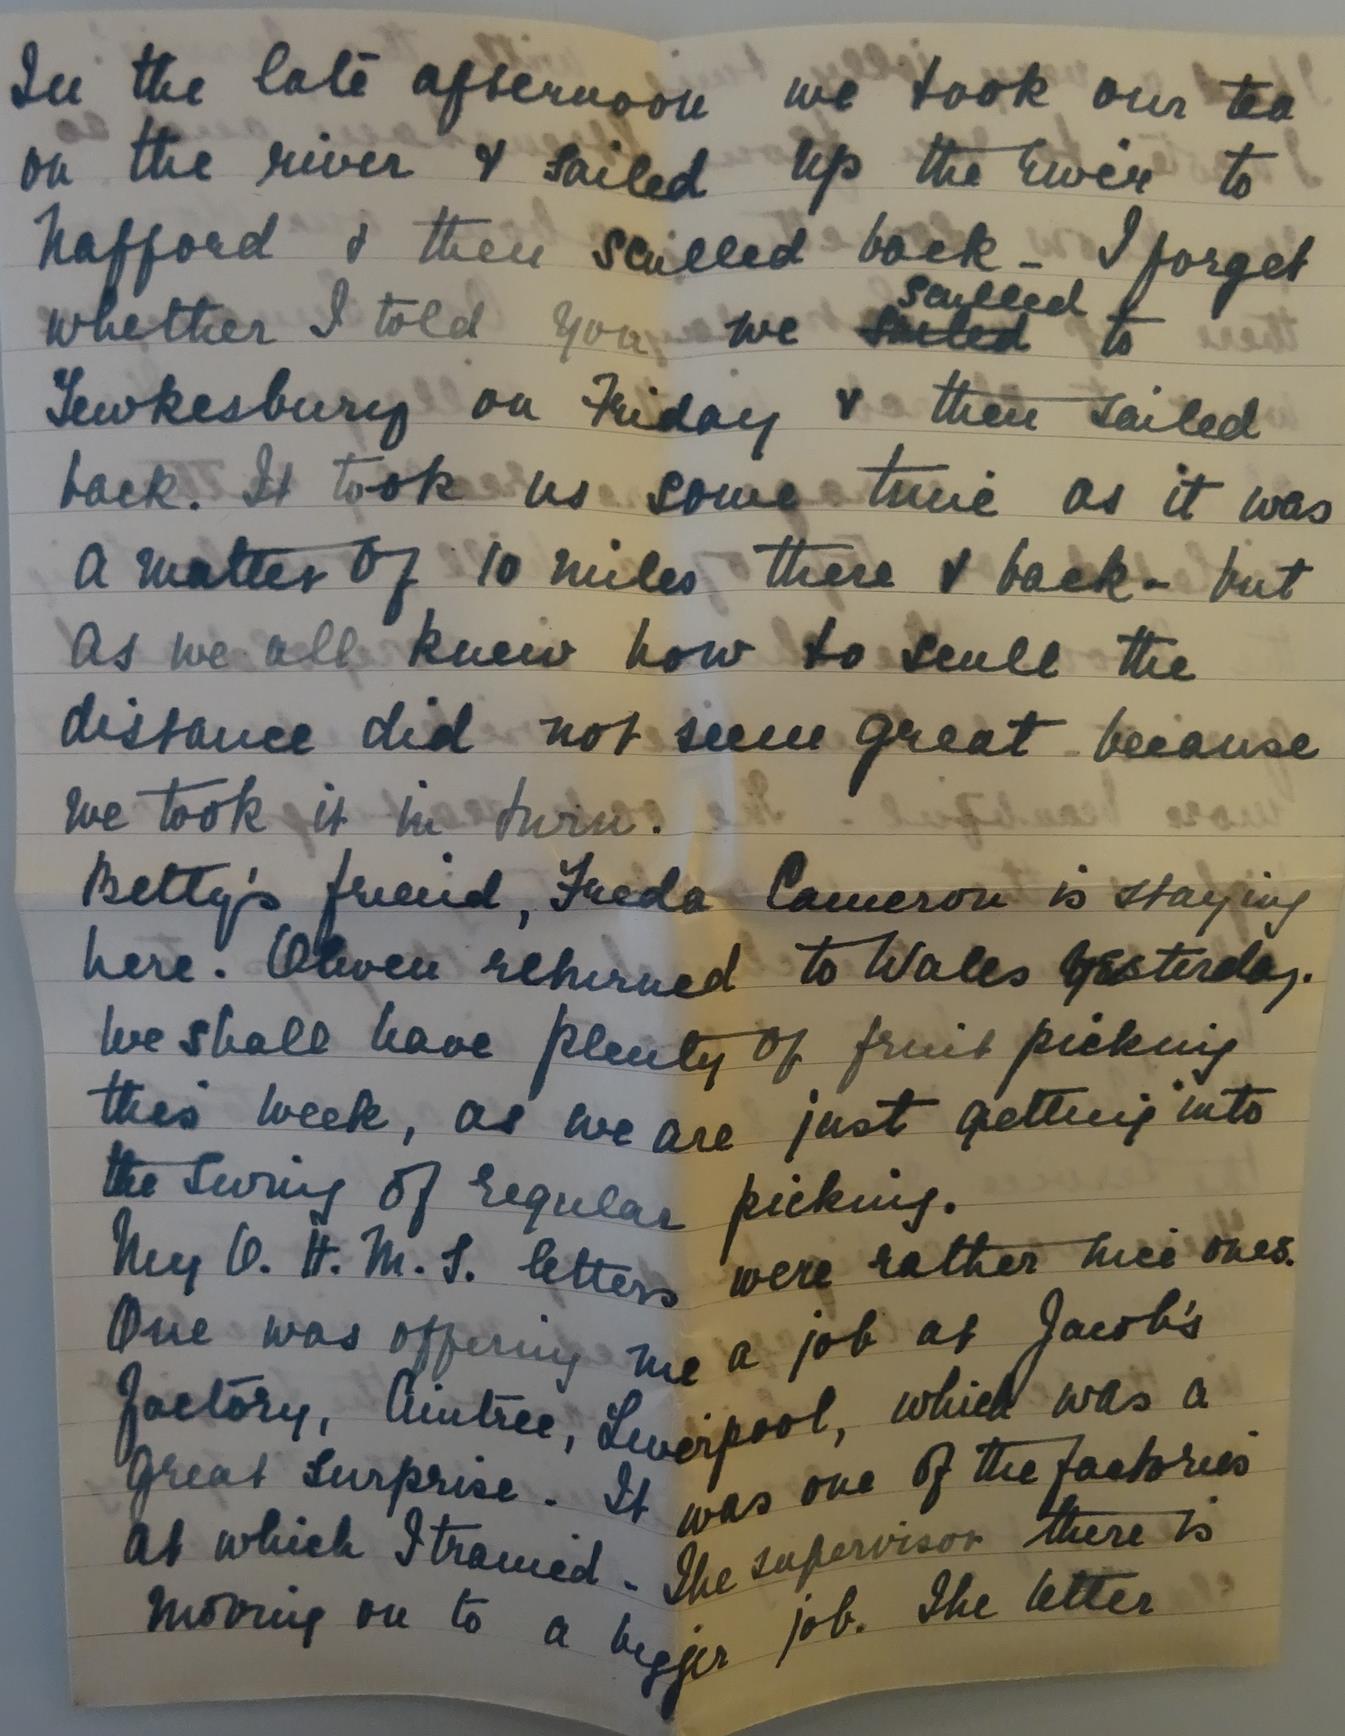 In the late afternoon we took our tea
on the river & sailed up the river to
Nafford & then sculled back - I forget
whether I told you, we sculled to
Tewkesbury on Friday & then sailed
back. It took us some time as it was
a matter of 10 miles there & back - but
as we all knew how to scull the
distance did not seem great because
we took it in turn.
Betty's friend, Freda Cameron is staying
here. Olwen returned to Wales yesterday.
We shall have plenty of fruit picking
this week, as we are just getting into
the swing of regular picking.
My O.H.M.S. letters were rather nice ones.
One was offering me a job at Jacob's
Factory, Aintree, Liverpool, which was a
great surprise. It was one of the factories
at which I trained - The supervisor there is
moving on to a bigger job. The letter